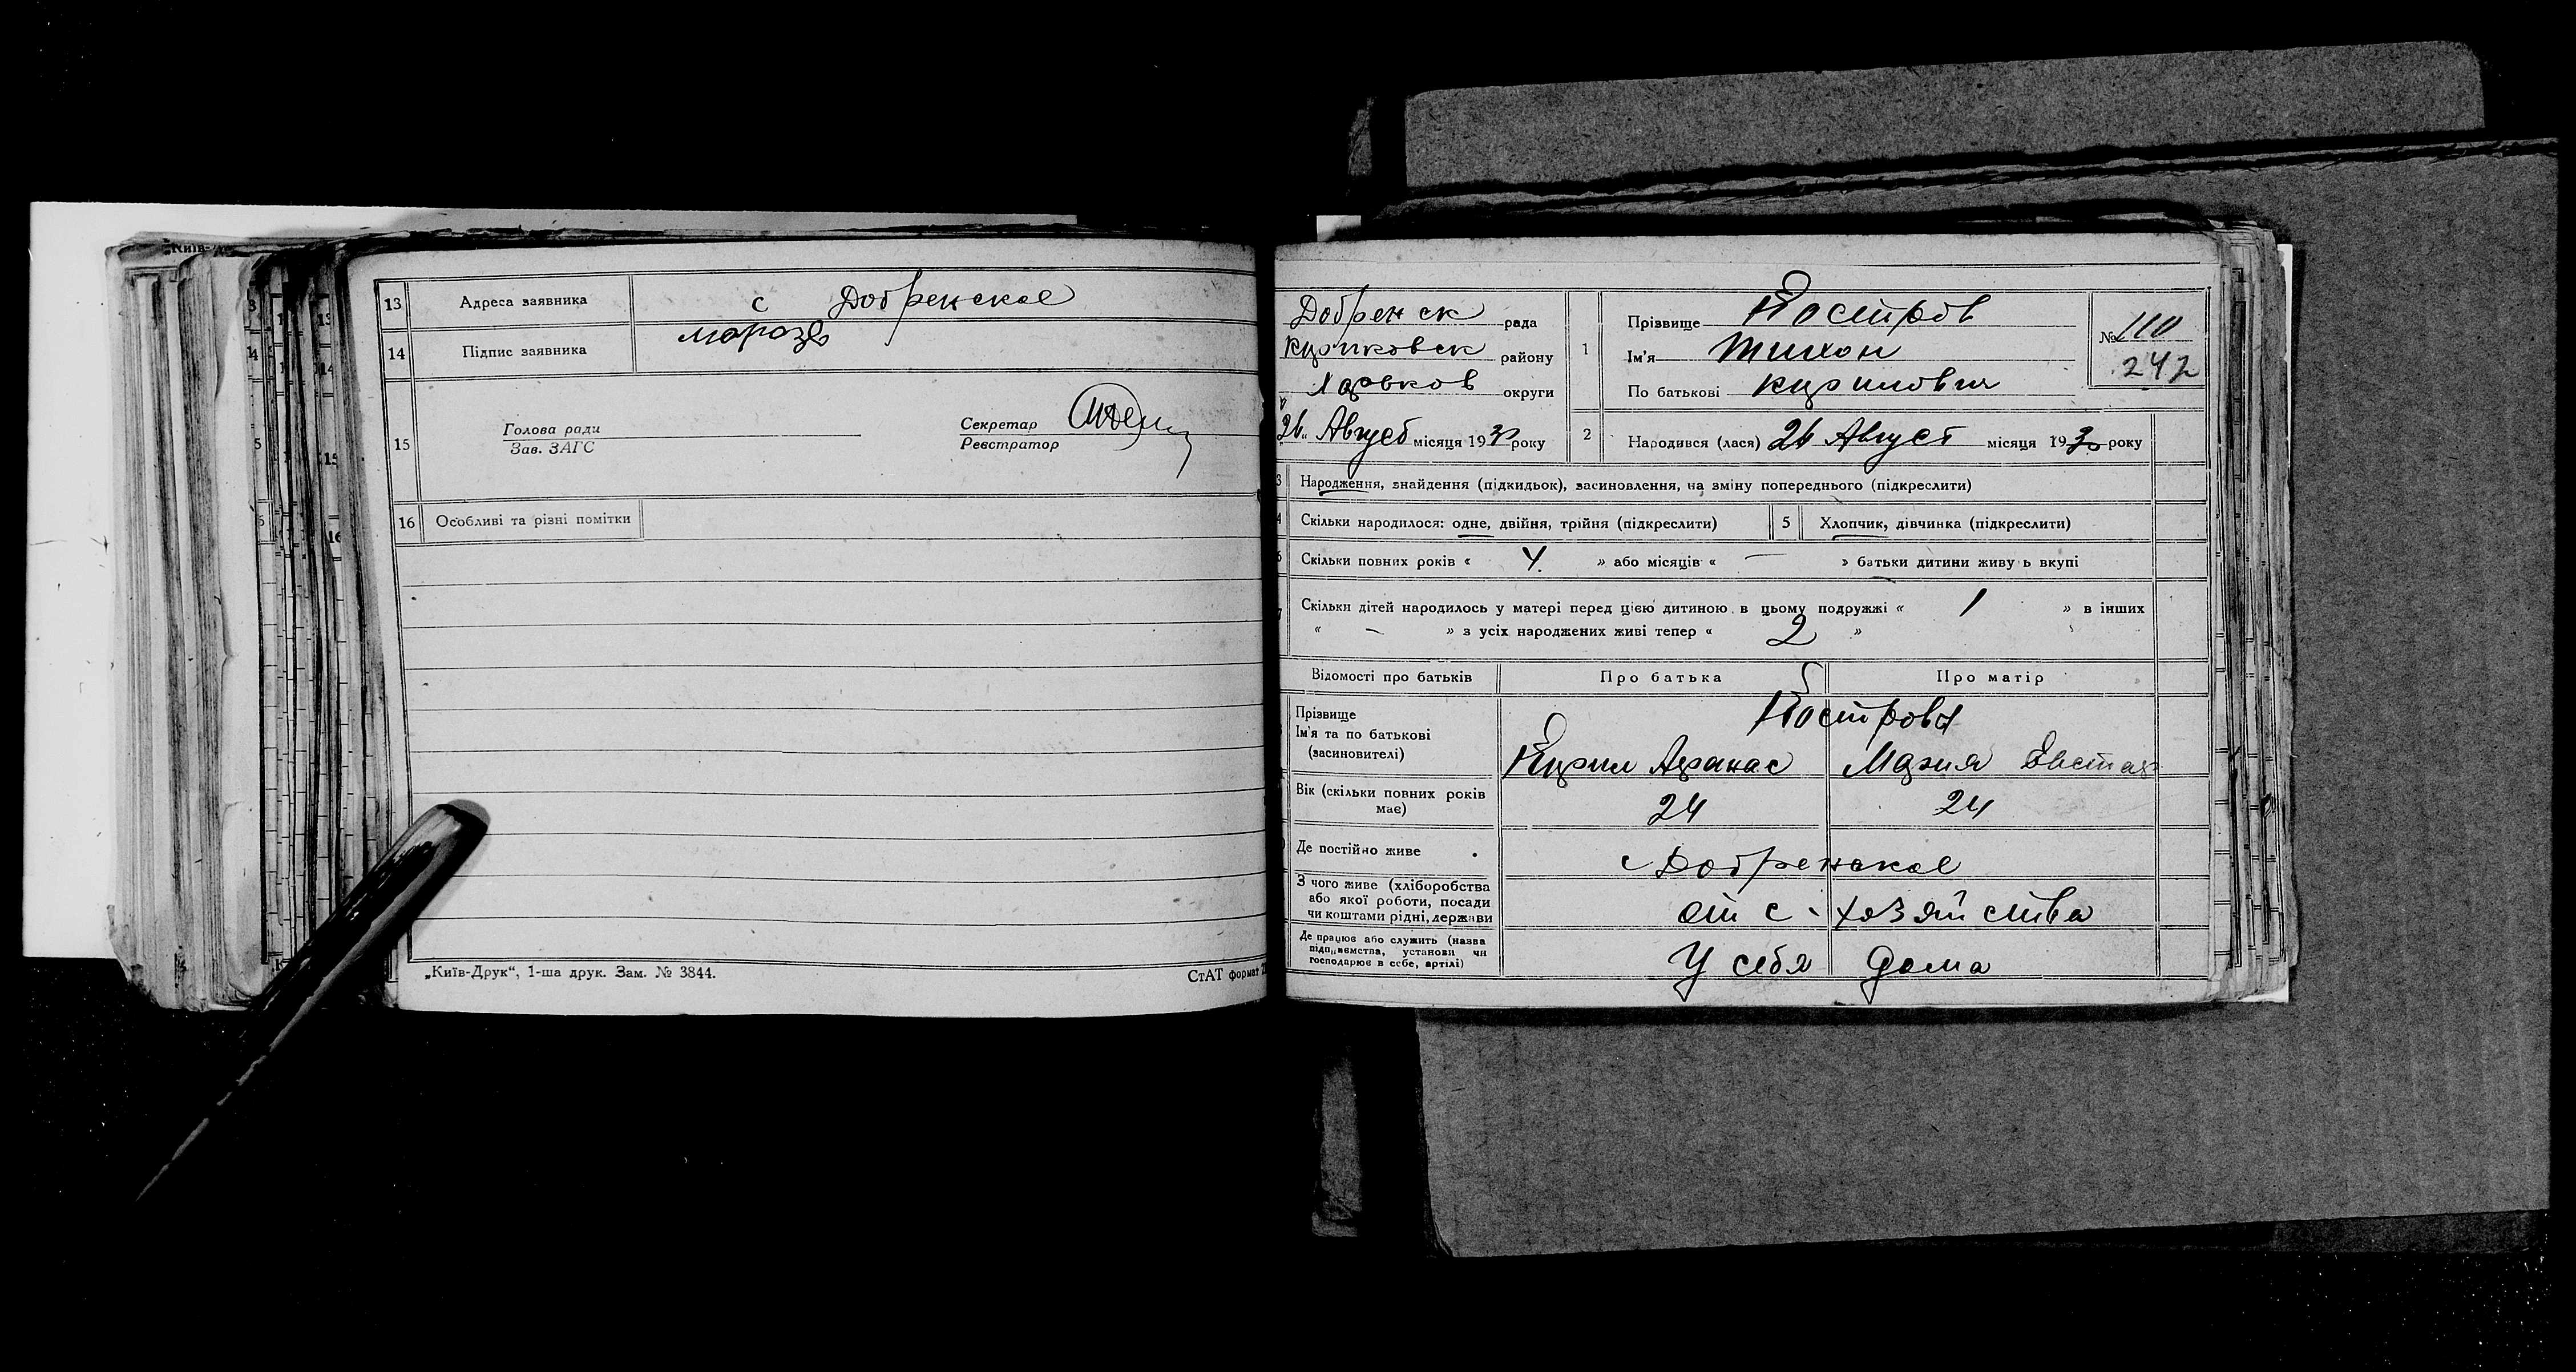 13 Адреса заявника с Добренское
14 Підпис заявника
15 Голова ради
Зав. ЗАГС
Секретар
Реєстратор
16 Особливі та різні помітки
„Київ-Друк“, 1-ша друк. Зам. № 3844.
СтАТ формат
Добренск рада
района району
Харьков округи
26 Август місяця 1930 року
1 Прізвище Костров
Ім'я Тихон
По батькові Кирилович
№ 110
242
2 Народився (лася) 26 Август місяця 1930 року
3 Народження, знайдення (підкидьок), засиновлення, на зміну попереднього (підкреслити)
4 Скільки народилося: одне, двійня, трійня (підкреслити)
5 Хлопчик, дівчинка (підкреслити)
6 Скільки повних років « 4 » або місяців « — » батьки дитини живуть вкупі
7 Скільки дітей народилось у матері перед цією дитиною в цьому подружжі « 1 » в інших
« — » з усіх народжених живі тепер « 2 »
Відомості про батьків Про батька Про матір
Прізвище Кострова
Ім'я та по батькові
(засиновителі) Кирил Афанас Мария Евстаф
Вік (скільки повних років має) 24 24
Де постійно живе с Добренское
З чого живе (хліборобства
або якої роботи, посади
чи коштами рідні, держави от с. хозяйства
Де працює або служить (назва
підприємства, установи чи
господарює в себе, артілі) У себя дома